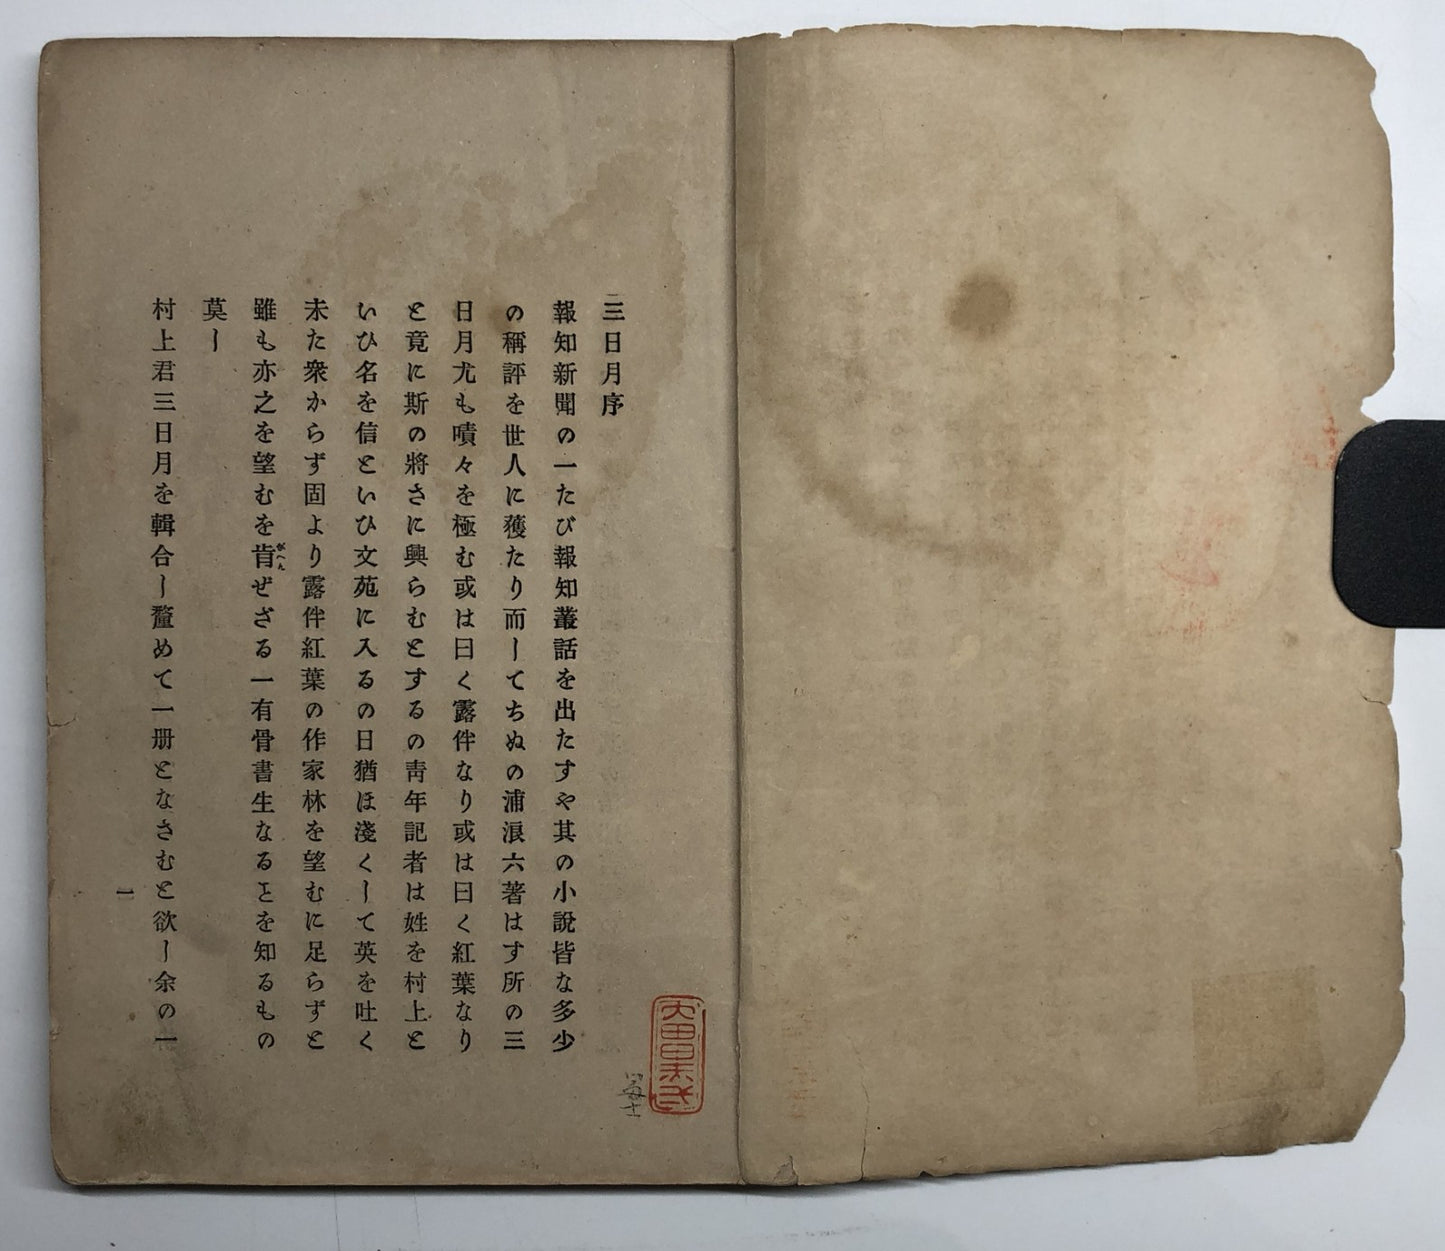 三日月序
報知新聞の一たび報知叢話を出たすや其の小說皆な多少
の稱評を世人に獲たり而してちぬの浦浪六著はす所の三
日月尤も嘖々を極む或は曰く露伴なり或は曰く紅葉なり
と竟に斯の將さに興らむとするの靑年記者は姓を村上と
いひ名を信といひ文苑に入るの日猶ほ淺くして英を吐く
未た衆からず固より露伴紅葉の作家林を望むに足らずと
雖も亦之を望むを肯ぜざる一有骨書生なるとを知るもの
がへん
莫し
村上君三日月を輯合し釐めて一册となさむと欲し余の一
一